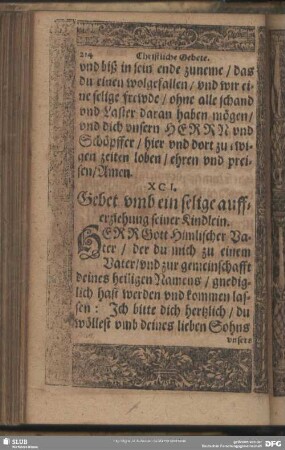 214 Christliche Gebete.
vnd biß in sein ende zuneme / das
du einen wolgefallen / vnd wir ei-
ne selige frewde / ohne alle schand
vnd Laster daran haben mögen /
vnd dich vnsern HERRN vnd
Schöpffer / hier vnd dort zu ewi-
gen zeiten loben / ehren vnd prei-
sen / Amen.
XCI.
Gebet vmb ein selige auff-
erziehung seiner Kindlein.
HERR Gott Himlischer Va-
ter / der du mich zu einem
Vater / vnd zur gemeinschafft
deines heiligen Namens / gnedig-
lich hast werden vnd kommen las-
sen : Ich bitte dich hertzlich / du
wöllest vmb deines lieben Sohns
vnsers
SLUB
DFG